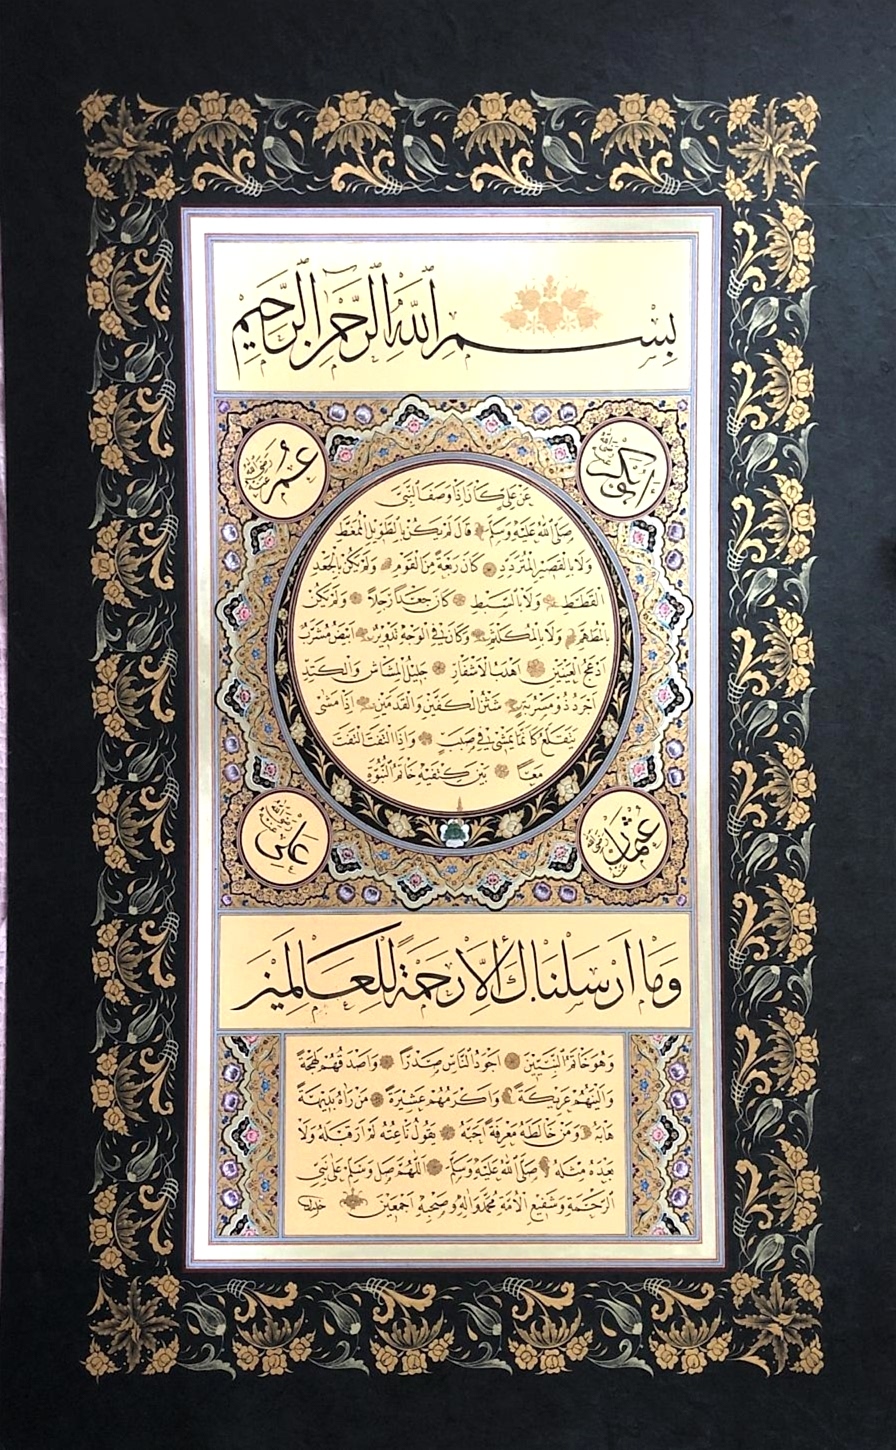 بِسْمِ اللّٰهِ الرَّحْمٰنِ الرَّحِيمِ
ابوبكر رضي الله عنه
عُمَر رضي الله عنه
عَنْ عَلِيٍّ كَانَ إِذَا وَصَفَ النَّبِيَّ
صَلَّى اللهُ عَلَيْهِ وَسَلَّمَ قَالَ لَمْ يَكُنْ بِالطَّوِيلِ الْمُمَغَّطِ
وَلَا بِالْقَصِيرِ الْمُتَرَدِّدِ كَانَ رَبْعَةً مِنَ الْقَوْمِ وَلَمْ يَكُنْ بِالْجَعْدِ
الْقَطَطِ وَلَا بِالسَّبِطِ كَانَ جَعْدًا رَجِلًا وَلَمْ يَكُنْ
بِالْمُطَهَّمِ وَلَا بِالْمُكَلْثَمِ وَكَانَ فِي الْوَجْهِ تَدْوِيرٌ أَبْيَضُ مُشْرَبٌ
أَدْعَجُ الْعَيْنَيْنِ أَهْدَبُ الْأَشْفَارِ جَلِيلُ الْمُشَاشِ وَالْكَتَدِ
أَجْرَدُ ذُو مَسْرُبَةٍ شَثْنُ الْكَفَّيْنِ وَالْقَدَمَيْنِ إِذَا مَشَى
يَتَقَلَّعُ كَأَنَّمَا يَمْشِي فِي صَبَبٍ وَإِذَا الْتَفَتَ الْتَفَتَ
مَعًا بَيْنَ كَتِفَيْهِ خَاتَمُ النُّبُوَّةِ
عُثْمَان رضي الله عنه
عَلِي رضي الله عنه
وَمَا أَرْسَلْنَاكَ إِلَّا رَحْمَةً لِلْعَالَمِينَ
وَهُوَ خَاتَمُ النَّبِيِّينَ أَجْوَدُ النَّاسِ صَدْرًا وَأَصْدَقُهُمْ لَهْجَةً
وَأَلْيَنُهُمْ عَرِيكَةً وَأَكْرَمُهُمْ عَشِيرَةً مَنْ رَآهُ بَدِيهَةً
هَابَهُ وَمَنْ خَالَطَهُ مَعْرِفَةً أَحَبَّهُ يَقُولُ نَاعِتُهُ لَمْ أَرَ قَبْلَهُ وَلَا
بَعْدَهُ مِثْلَهُ صَلَّى اللهُ عَلَيْهِ وَسَلَّمَ اللّٰهُمَّ صَلِّ وَسَلِّمْ عَلَى نَبِيِّ
الرَّحْمَةِ وَشَفِيعِ الْأُمَّةِ مُحَمَّدٍ وَآلِهِ وَصَحْبِهِ أَجْمَعِينَ